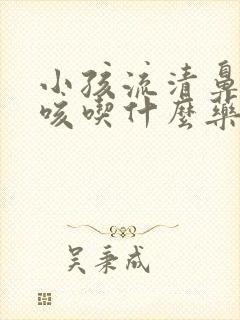 小孩流清鼻
咳喫什麼藥
吴秉成